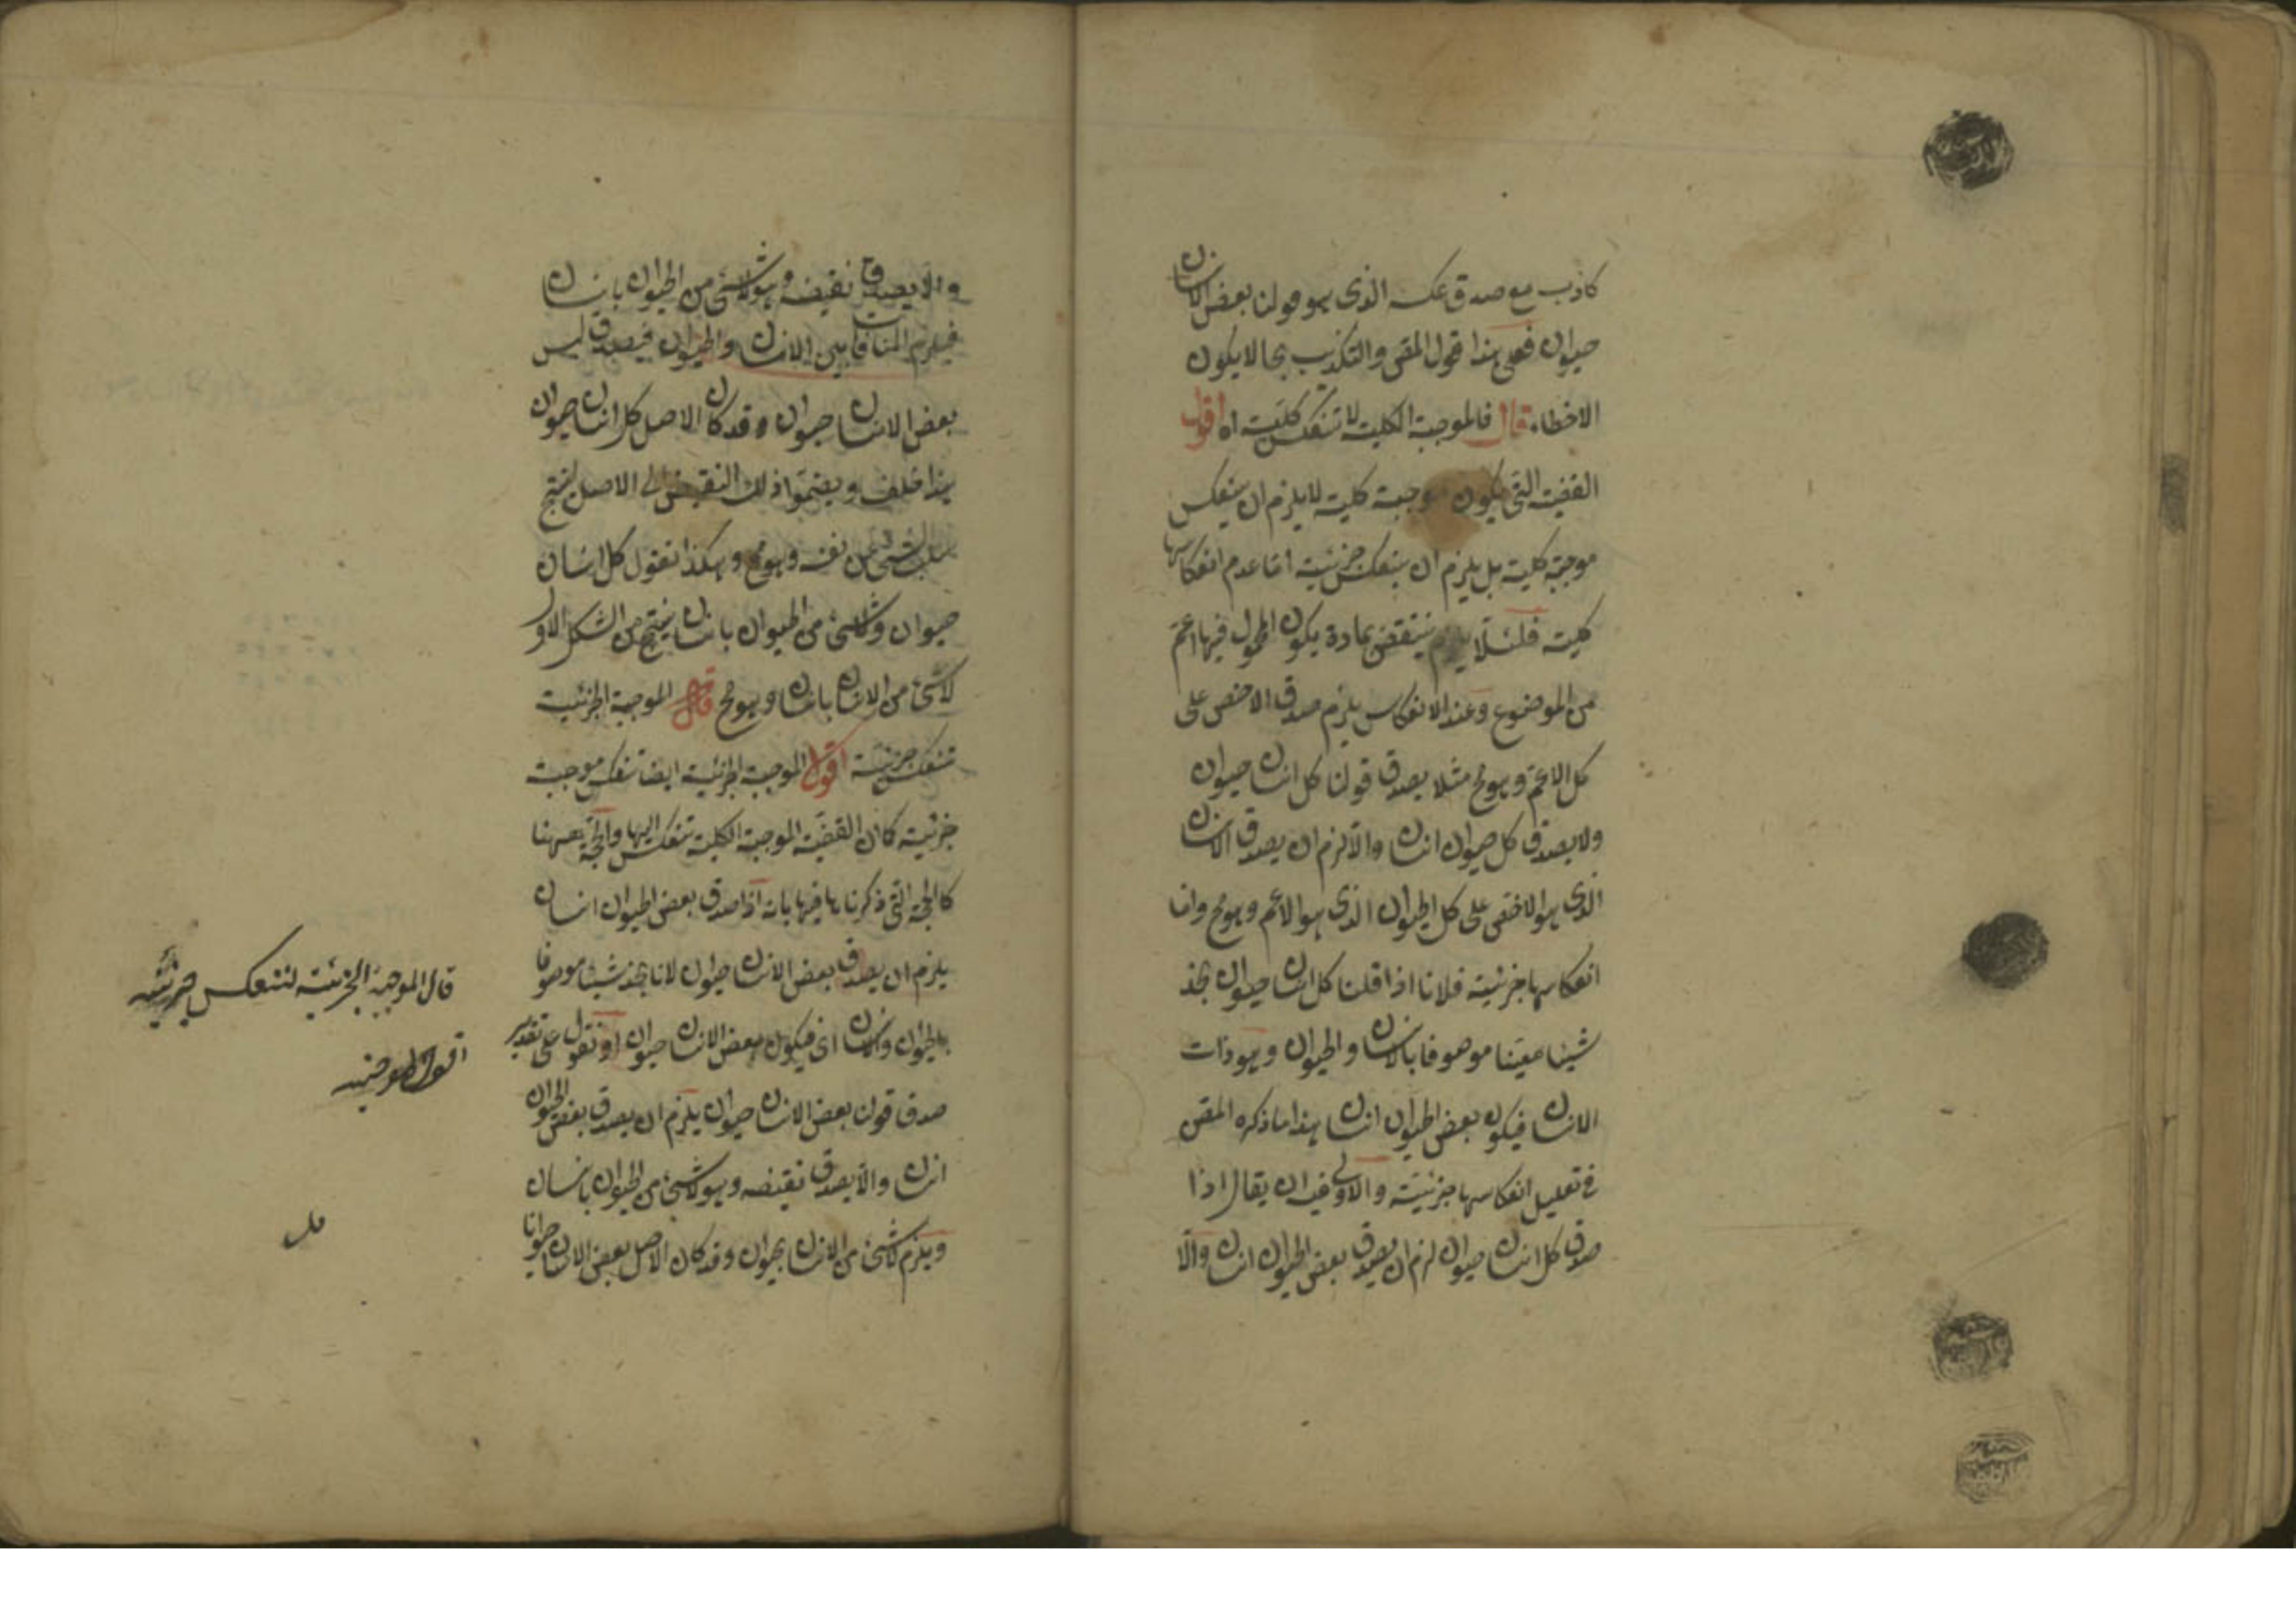 كاذب مع صدق عكسه الذى هو قولنا بعض الانسان
حيوان فعلى هذا قول المص والتكذيب بحالا يكون
الاخطاء قال فالموجبة الكلية لا تنعكس كلية اه اقول
القضية التى يكون موجبة كلية لا يلزم ان ينعكس
موجبة كلية بل يلزم ان ينعكس جزئية اما عدم انعكاسها
كلية فلئلا ينتقض بمادة يكون المحمول فيها اعم
من الموضوع وعند الانعكاس يلزم صدق الاخص على
كل الاعم وهو مح مثلا يصدق قولنا كل انسان حيوان
ولا يصدق كل حيوان انسان والا لزم ان يصدق الانسان
الذى هو الاخص على كل الحيوان الذى هو الاعم وهو مح واما
انعكاسها جزئية فلانا اذا قلنا كل انسان حيوان نجد
شيئا معينا موصوفا بالانسان والحيوان وهو ذات
الانسان فيكون بعض الحيوان انسان هذا ما ذكره المص
فى تعليل انعكاسها جزئية والاولى فيه ان يقال اذا
صدق كل انسان حيوان لزم ان يصدق بعض الحيوان انسان والا
والا يصدق نقيضه وهو لا شئ من الحيوان بانسان
فيلزم المنافات بين الانسان والحيوان فيصدق ليس
بعض الانسان حيوان وقد كان الاصل كل انسان حيوان
هذا خلف ويضم ذلك النقيض الى الاصل لينتج
سلب الشئ عن نفسه وهو مح وهكذا نقول كل انسان
حيوان ولا شئ من الحيوان بانسان ينتج من الشكل الاول
لا شئ من الانسان بانسان وهو مح قال الموجبة الجزئية
تنعكس جزئية اقول الموجبة الجزئية ايضا تنعكس موجبة
جزئية كما ان القضية الموجبة الكلية تنعكس اليها والحجة ههنا
كالحجة التى ذكرناها فيها بانه اذا صدق بعض الحيوان انسان
يلزم ان يصدق بعض الانسان حيوان لانا نجد شيئا موصوفا
بالحيوان والانسان اى فيكون بعض الانسان حيوان او نقول على تقدير
صدق قولنا بعض الانسان حيوان يلزم ان يصدق بعض الحيوان
انسان والا يصدق نقيضه وهو لا شئ من الحيوان بانسان
ويلزم لا شئ من الانسان بحيوان وقد كان الاصل بعض الانسان حيوانا
قال الموجبة الجزئية لتنعكس جزئية